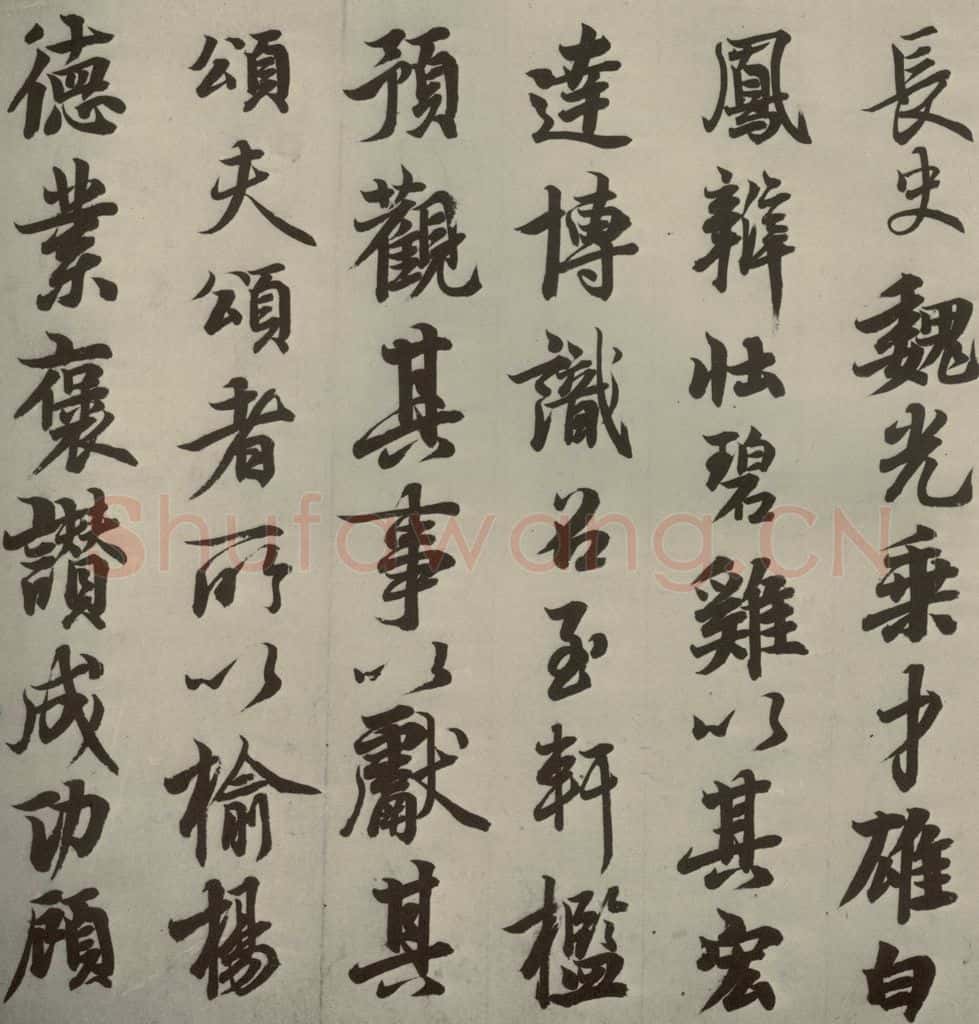 長史魏光乗才雄白
鳳辯壮碧雞以其宏
達博識召至軒檻
預觀其事以獻其
頌夫頌者所以榆楊
德業褒讃成功顧
Shufawang.CN